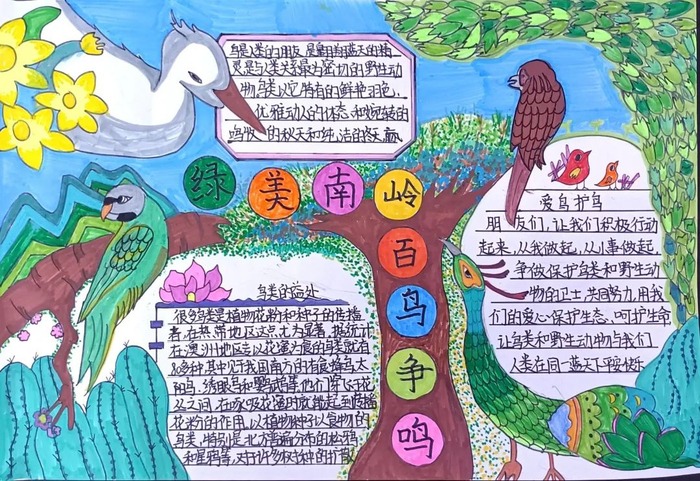 鸟是人类的朋友,是翱翔蓝天的精
灵,是与人类关系最为密切的野生动
物,鸟类以它特有的鲜艳羽色、
优雅动人的体态和婉转的
鸣
的秋天和纯洁的
绿美南岭
百鸟争鸣
鸟类的益处
很多鸟类是植物花粉和种子的传播
者,在热带地区这点尤为显著,据统计
在澳洲地区以花蜜为食的鸟类就有
80多种,其中见于我国南方的有太
阳鸟、绣眼鸟和等,他们穿飞于花
丛之间,在吸花蜜时就起到传播
花粉的作用,以植物种子以食物的
鸟类,特别是北方普遍分布的松鸦
和星鸦等,对于许多树种的扩散
爱鸟护鸟
朋友们,让我们积极行动
起来,从我做起,从小事做起
争做保护鸟类和野生动
物的卫士,共同努力,用我
们的爱心保护生态、呵护生命
让鸟类和野生动物与我们
人类在同一蓝天下平安快乐